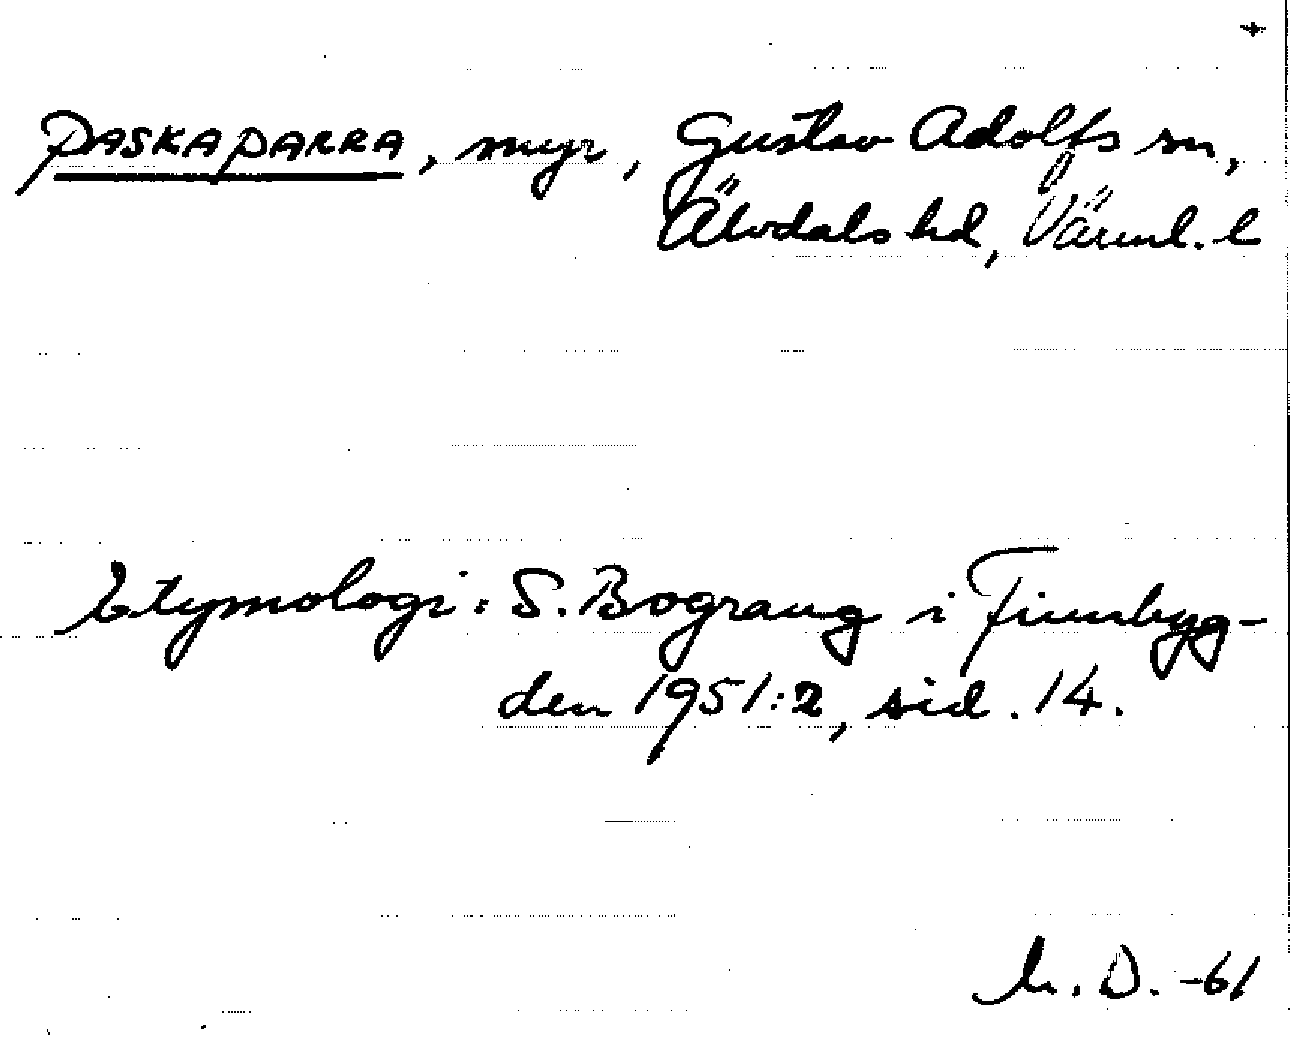 +
PASKAPARRA, myr, Gustav Adolfs sn,
Älvdals hd, Värml. l
Etymologi: S. Bograng i Finnbyg-
den 1951:2, sid. 14.
D. -61